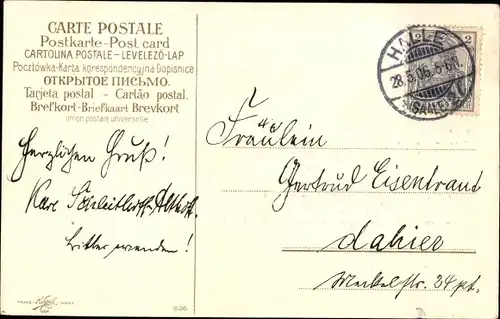 CARTE POSTALE
Postkarte - Post card
CARTOLINA POSTALE - LEVELEZÖ-LAP
Pocztówka-Karta korespondencyjna-Dopisnice
ОТКРЫТОЕ ПИСЬМО.
Tarjeta postal - Cartão postal.
Brefkort-Briefkaart Brevkort
Union postale universelle
Herzlichen Gruß!
Karl
Bitte wenden!
TRADE MARK
636
2 2
HALLE
28.5.06.5-6N
(SAALE)
Fräulein
Gertrud Eisentraut
dahier
Merkelstr. 34 pt.